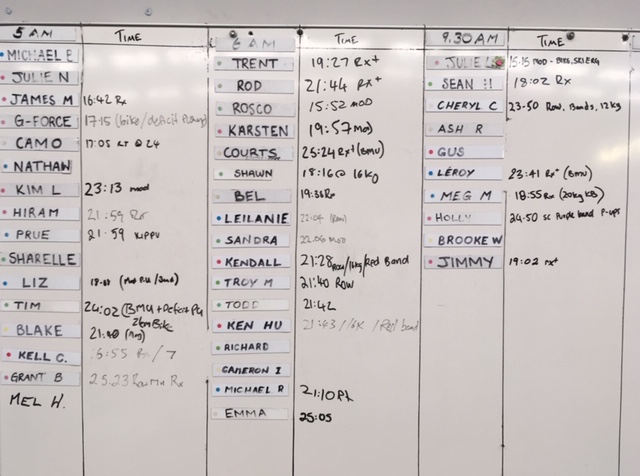 5 AM TIME
MICHAEL P
JULIE N
JAMES M 16:42 Rx
G-FORCE 17:15 (bike/deficit
CAMO 17:05 @ 24
NATHAN
KIM L 23:13 mod
HIRAM 21:59 Rx
PRUE 21:59 KIPPU
SHARELLE
LIZ
TIM 24:02 (BMU + Deficit PU
2km Bike
BLAKE 21:40
KELL C.
GRANT B 25:23 Rx
MEL H.
6 AM TIME
TRENT 19:27 Rx+
ROD 21:44 Rx+
ROSCO 15:52 MOD
KARSTEN 19:57 Mod
COURTS 25:24 Rx+ (BMU)
SHAWN 18:16 @ 16kg
BEL 19:36 Rx
LEILANIE 22:04 (Row)
SANDRA 22:06 MOD
KENDALL 21:28 Row/16kg/Red Band
TROY M 21:40 ROW
TODD 21:42
KEN HU 21:43 /16K /Red band
RICHARD
CAMERON I
MICHAEL R 21:10 Rx
EMMA 25:05
9.30 AM TIME
JULIE 15:15 MOD - BIKE, SKI ERG
SEAN H 18:02 Rx
CHERYL C 23:50 Row, Bands, 12kg
ASH R
GUS
LEROY 23:41 Rx+ (BMU)
MEG M 18:55 Rx (20kg KB)
HOLLY 24:50 sc Purple band P-ups
BROOKE W
JIMMY 19:02 rx+